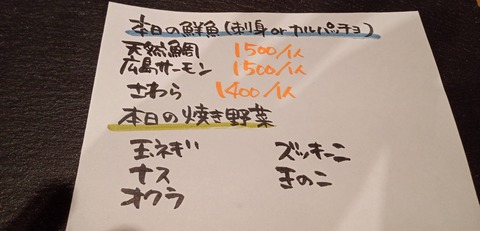 本日の鮮魚(刺身orカルパッチョ)
天然鯛 1500/1人
広島サーモン 1500/1人
さわら 1400/1人
本日の焼き野菜
玉ネギ ズッキーニ
ナス きのこ
オクラ